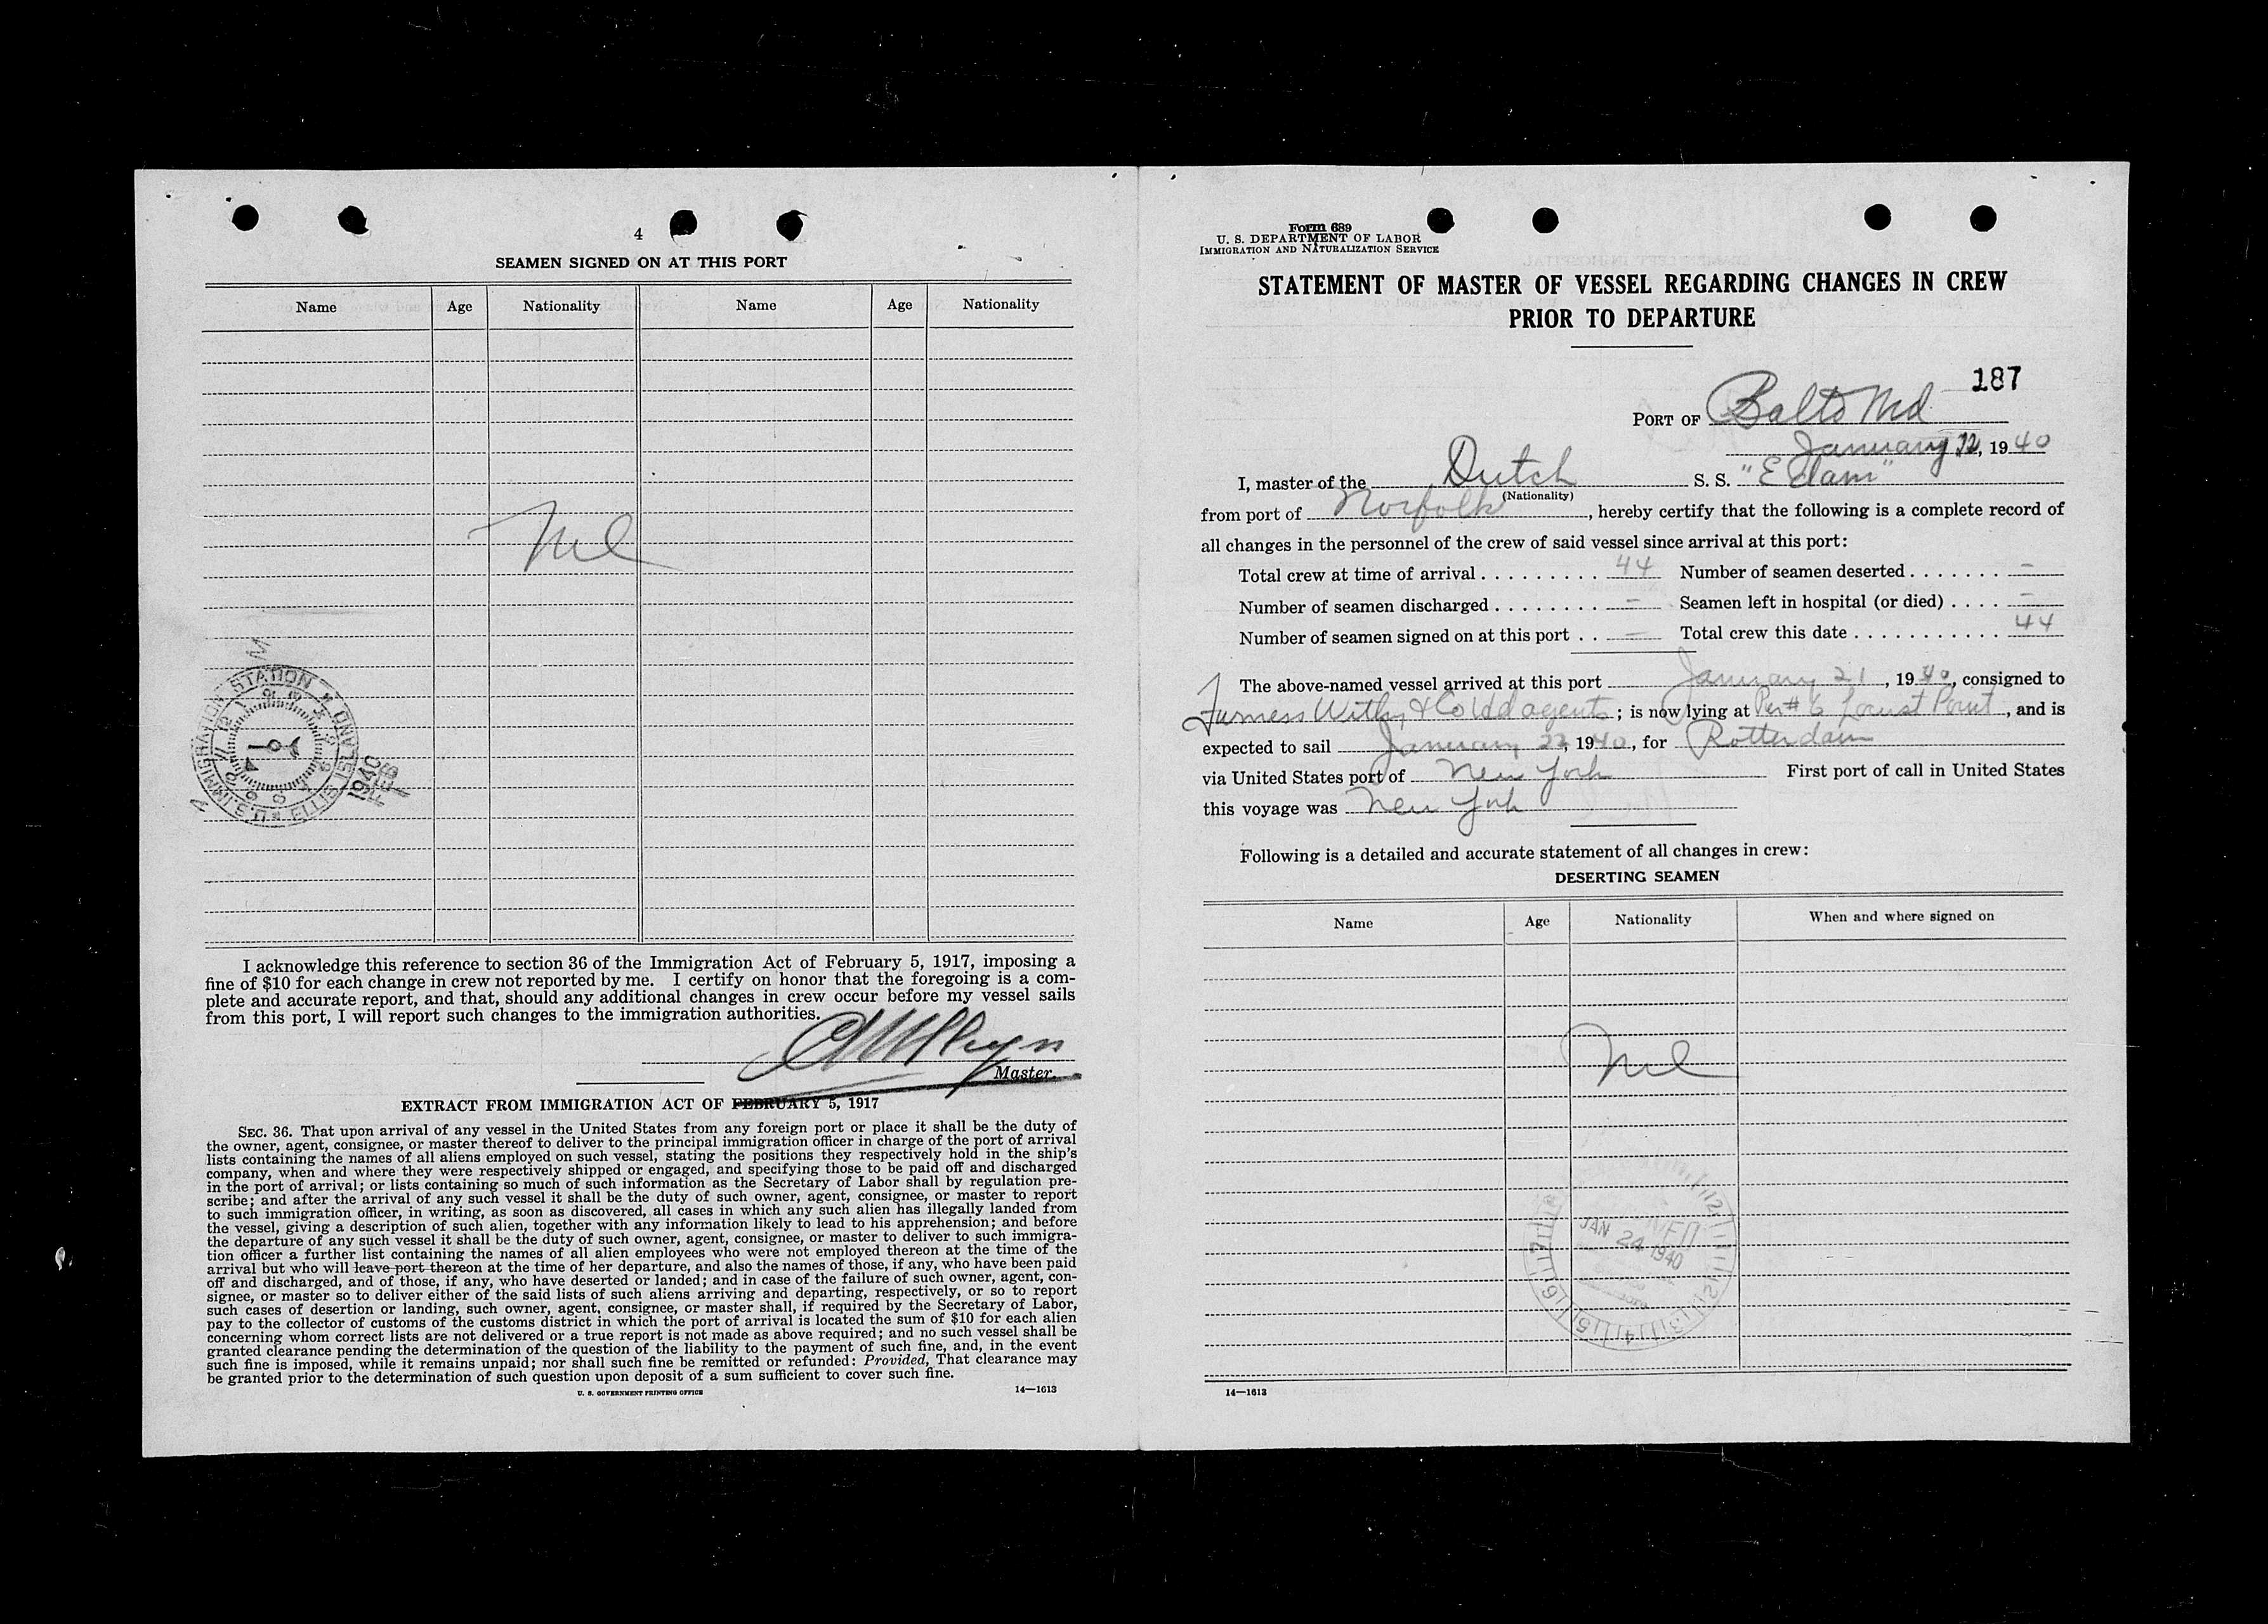 4
SEAMEN SIGNED ON AT THIS PORT
Name Age Nationality Name Age Nationality
Nil
U.S. IMMIGRATION STATION ELLIS ISLAND
1940
FEB
I acknowledge this reference to section 36 of the Immigration Act of February 5, 1917, imposing a
fine of $10 for each change in crew not reported by me. I certify on honor that the foregoing is a com-
plete and accurate report, and that, should any additional changes in crew occur before my vessel sails
from this port, I will report such changes to the immigration authorities.
Master.
EXTRACT FROM IMMIGRATION ACT OF FEBRUARY 5, 1917
SEC. 36. That upon arrival of any vessel in the United States from any foreign port or place it shall be the duty of
the owner, agent, consignee, or master thereof to deliver to the principal immigration officer in charge of the port of arrival
lists containing the names of all aliens employed on such vessel, stating the positions they respectively hold in the ship's
company, when and where they were respectively shipped or engaged, and specifying those to be paid off and discharged
in the port of arrival; or lists containing so much of such information as the Secretary of Labor shall by regulation pre-
scribe; and after the arrival of any such vessel it shall be the duty of such owner, agent, consignee, or master to report
to such immigration officer, in writing, as soon as discovered, all cases in which any such alien has illegally landed from
the vessel, giving a description of such alien, together with any information likely to lead to his apprehension; and before
the departure of any such vessel it shall be the duty of such owner, agent, consignee, or master to deliver to such immigra-
tion officer a further list containing the names of all alien employees who were not employed thereon at the time of the
arrival but who will leave port thereon at the time of her departure, and also the names of those, if any, who have been paid
off and discharged, and of those, if any, who have deserted or landed; and in case of the failure of such owner, agent, con-
signee, or master so to deliver either of the said lists of such aliens arriving and departing, respectively, or so to report
such cases of desertion or landing, such owner, agent, consignee, or master shall, if required by the Secretary of Labor,
pay to the collector of customs of the customs district in which the port of arrival is located the sum of $10 for each alien
concerning whom correct lists are not delivered or a true report is not made as above required; and no such vessel shall be
granted clearance pending the determination of the question of the liability to the payment of such fine, and, in the event
such fine is imposed, while it remains unpaid; nor shall such fine be remitted or refunded: Provided, That clearance may
be granted prior to the determination of such question upon deposit of a sum sufficient to cover such fine.
U. S. GOVERNMENT PRINTING OFFICE 14—1613
Form 689
U. S. DEPARTMENT OF LABOR
IMMIGRATION AND NATURALIZATION SERVICE
STATEMENT OF MASTER OF VESSEL REGARDING CHANGES IN CREW
PRIOR TO DEPARTURE
187
PORT OF Balto Md
January 22, 1940
I, master of the Dutch S. S. "Edam"
(Nationality)
from port of Norfolk, hereby certify that the following is a complete record of
all changes in the personnel of the crew of said vessel since arrival at this port:
Total crew at time of arrival . . . . . . . . . 44 Number of seamen deserted . . . . . . . –
Number of seamen discharged . . . . . . . . – Seamen left in hospital (or died) . . . . –
Number of seamen signed on at this port . . – Total crew this date . . . . . . . . . . . 44
The above-named vessel arrived at this port January 21, 1940, consigned to
Furness Withy & Co Ltd agents; is now lying at Pier # 6 Locust Point, and is
expected to sail January 22, 1940, for Rotterdam
via United States port of New York First port of call in United States
this voyage was New York
Following is a detailed and accurate statement of all changes in crew:
DESERTING SEAMEN
Name Age Nationality When and where signed on
Nil
JAN 24 1940
14—1613